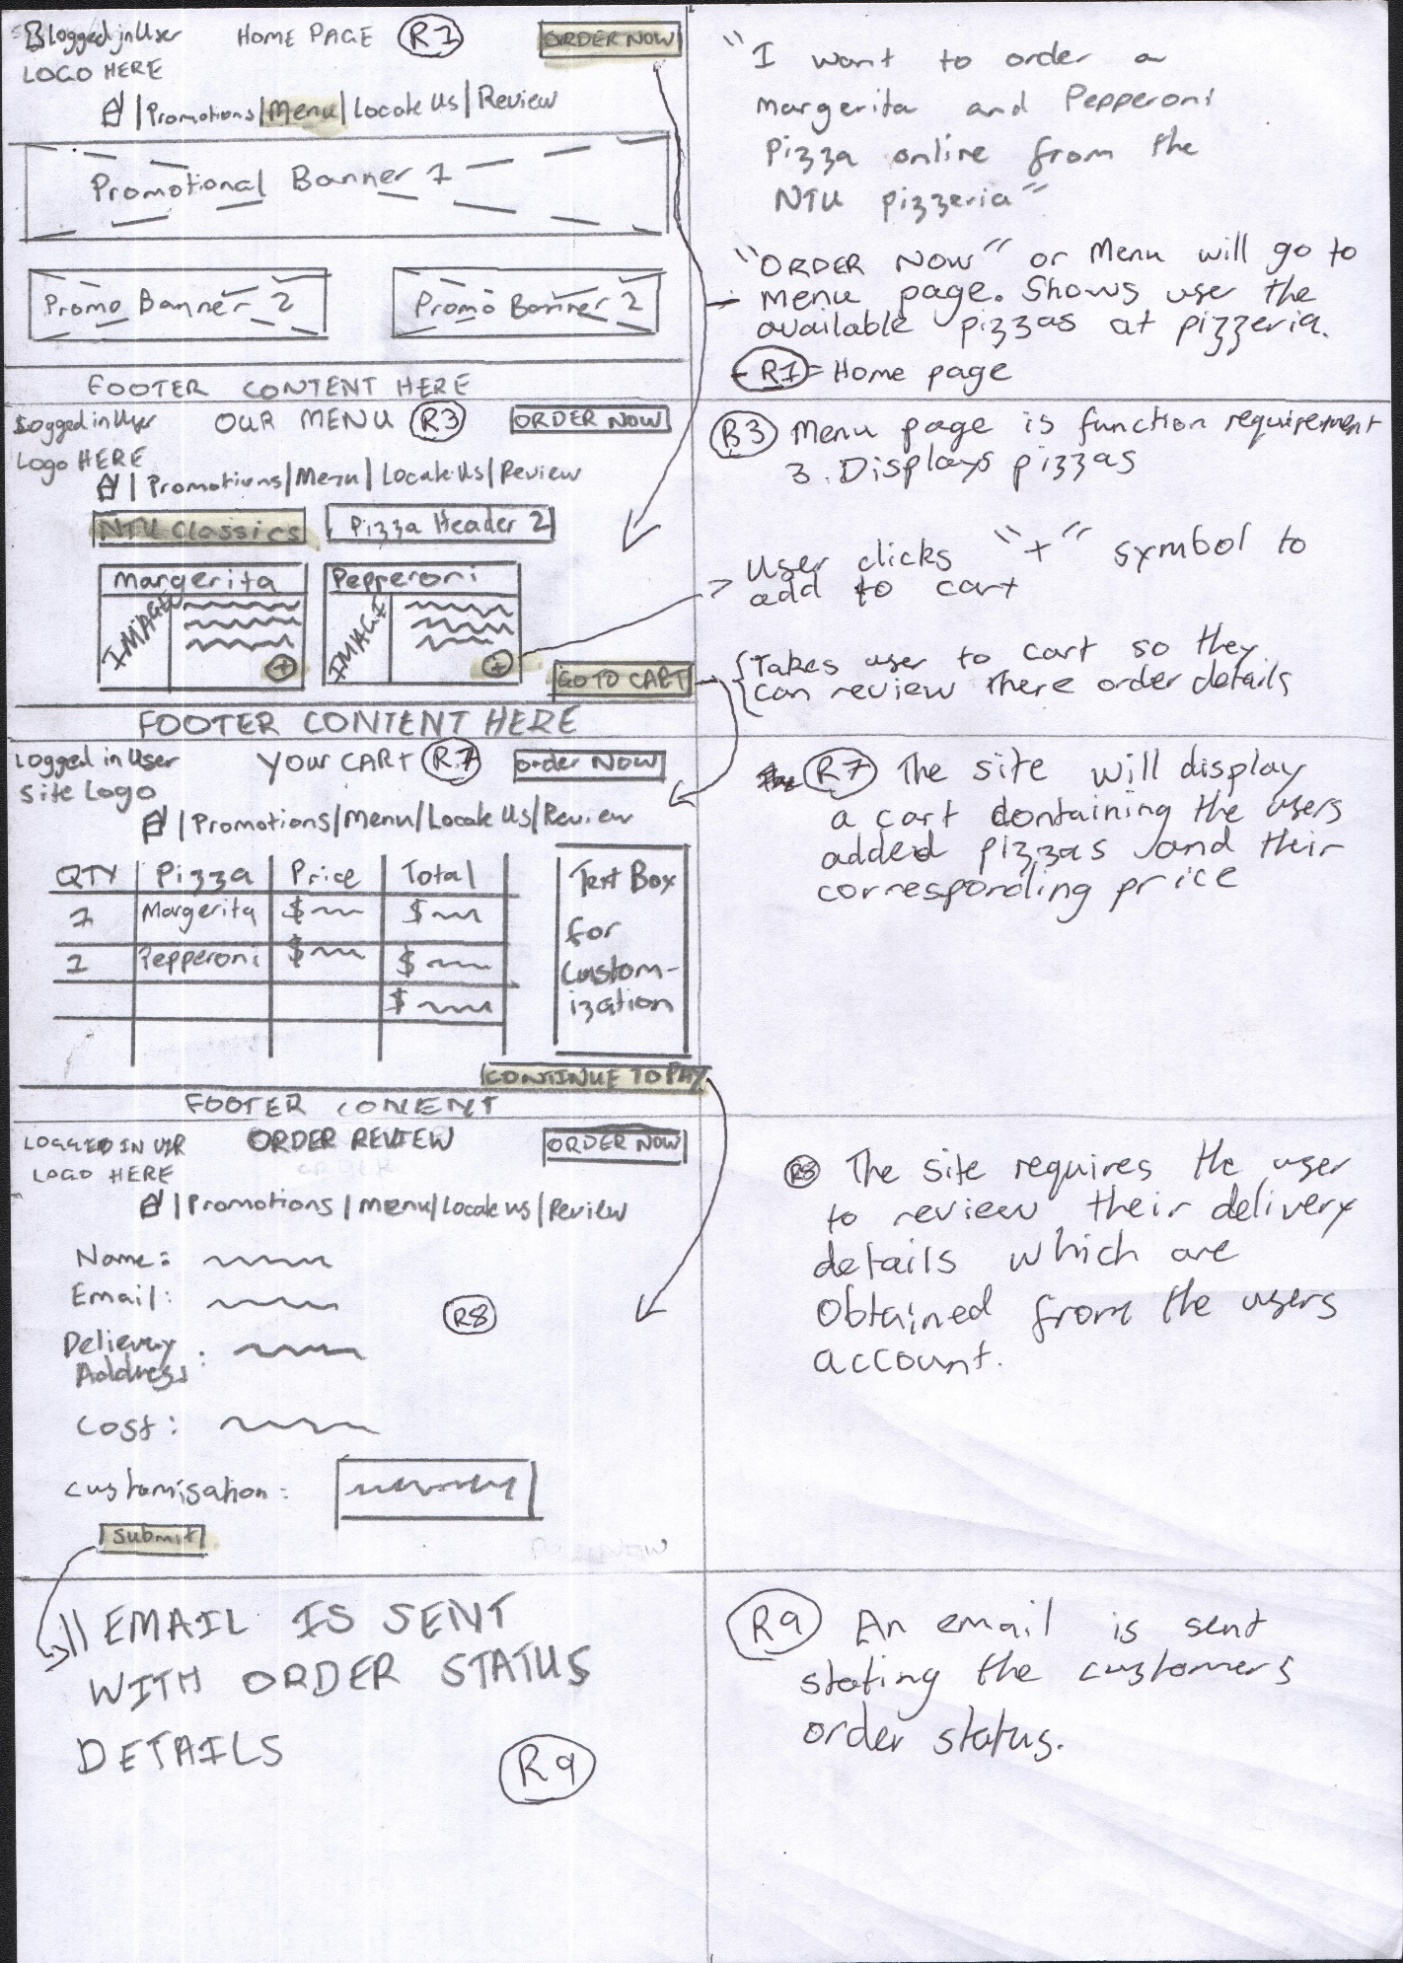 Logged in User HOME PAGE R1 ORDER NOW
LOGO HERE
| Promotions | Menu | Locate Us | Review
Promotional Banner 1
Promo Banner 2 Promo Banner 2
FOOTER CONTENT HERE
"I want to order a
margerita and Pepperoni
Pizza online from the
NTU pizzeria"
"ORDER NOW" or Menu will go to
- menu page. Shows user the
available pizzas at pizzeria.
- R1 = Home page
Logged in User OUR MENU R3 ORDER NOW
Logo HERE
| Promotions | Menu | Locate Us | Review
NTU Classics Pizza Header 2
Margerita Pepperoni
IMAGE IMAGE
+ +
GO TO CART
FOOTER CONTENT HERE
R3 Menu page is function requirement
3. Displays pizzas
User clicks "+" symbol to
add to cart
Takes user to cart so they
can review there order details
Logged in User YOUR CART R7 Order NOW
Site Logo
| Promotions | Menu | Locate Us | Review
QTY Pizza Price Total
1 Margerita $ $
1 Pepperoni $ $
$
Text Box
for
Custom-
ization
CONTINUE TO PAY
FOOTER CONENT
R7 The site will display
a cart containing the users
added pizzas and their
corresponding price
LOGGED IN USR ORDER REVIEW ORDER NOW
LOGO HERE
| Promotions | Menu | Locate us | Review
Name:
Email:
R8
Delievery
Address:
Cost:
customisation:
Submit
R8 The site requires the user
to review their delivery
details which are
obtained from the users
account.
EMAIL IS SENT
WITH ORDER STATUS
DETAILS
R9
R9 An email is sent
stating the customers
order status.